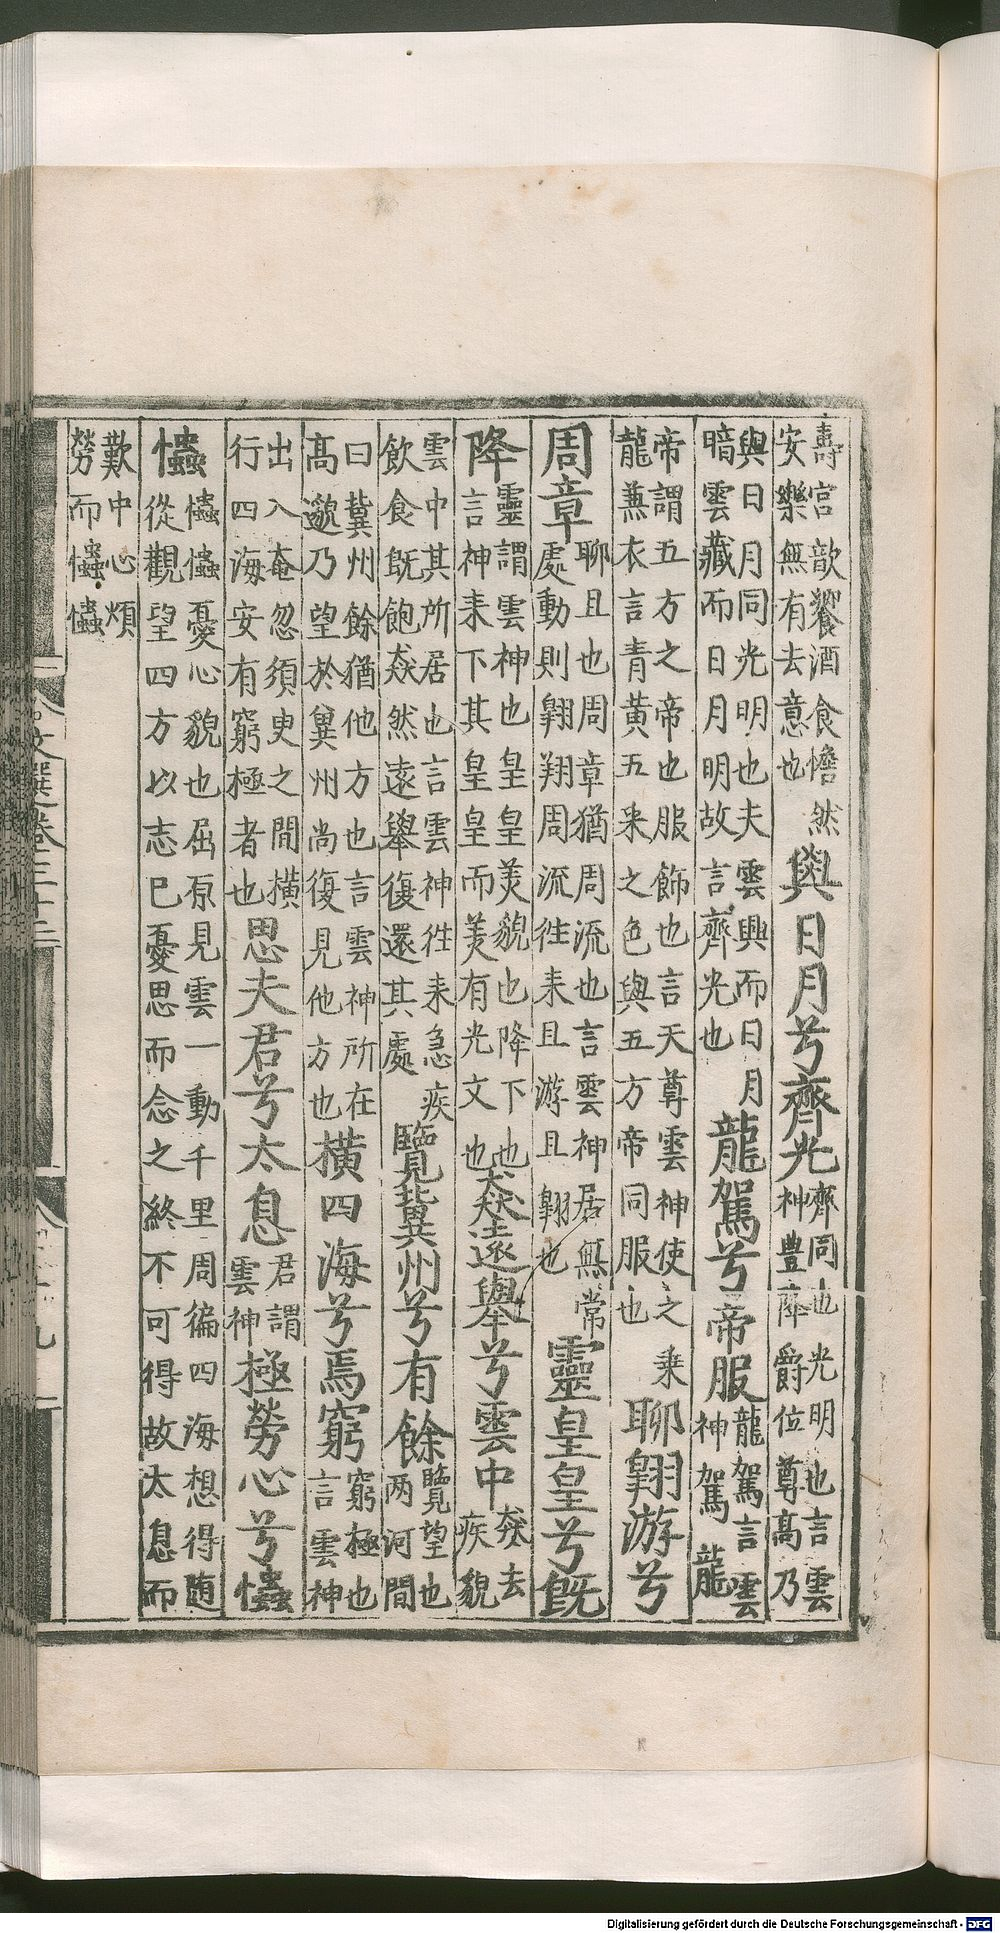 壽宮歆饗酒食憺然
安樂無有去意也
與日月兮齊光
齊同也光明也言雲
神豊隆爵位尊高乃
與日月同光明也夫雲興而日月
暗雲藏而日月明故言齊光也
龍駕兮帝服
龍駕言雲
神駕龍
帝謂五方之帝也服飾也言天尊雲神使之乗
龍兼衣言青黃五采之色與五方帝同服也
聊翺游兮
周章
聊且也周章猶周流也言雲神居無常
處動則翺翔周流徃来且游且翺也
靈皇皇兮既
降
靈謂雲神也皇皇美貌也降下也
言神来下其皇皇而美有光文也
猋遠舉兮雲中
猋去
疾貌
雲中其所居也言雲神徃来急疾
飲食既飽猋然遠舉復還其處
覽冀州兮有餘
覽望也
两河間
曰冀州餘猶他方也言雲神所在
高邈乃望於冀州尚復見他方也
橫四海兮焉窮
窮極也
言雲神
出入奄忽須臾之間橫
行四海安有窮極者也
思夫君兮太息
君謂
雲神
極勞心兮𢥞
𢥞
𢥞𢥞憂心貌也屈原見雲一動千里周徧四海想得随
從觀望四方以志已憂思而念之終不可得故太息而
歎中心煩
勞而𢥞𢥞
文選卷三十二
十九
Digitalisierung gefördert durch die Deutsche Forschungsgemeinschaft - DFG